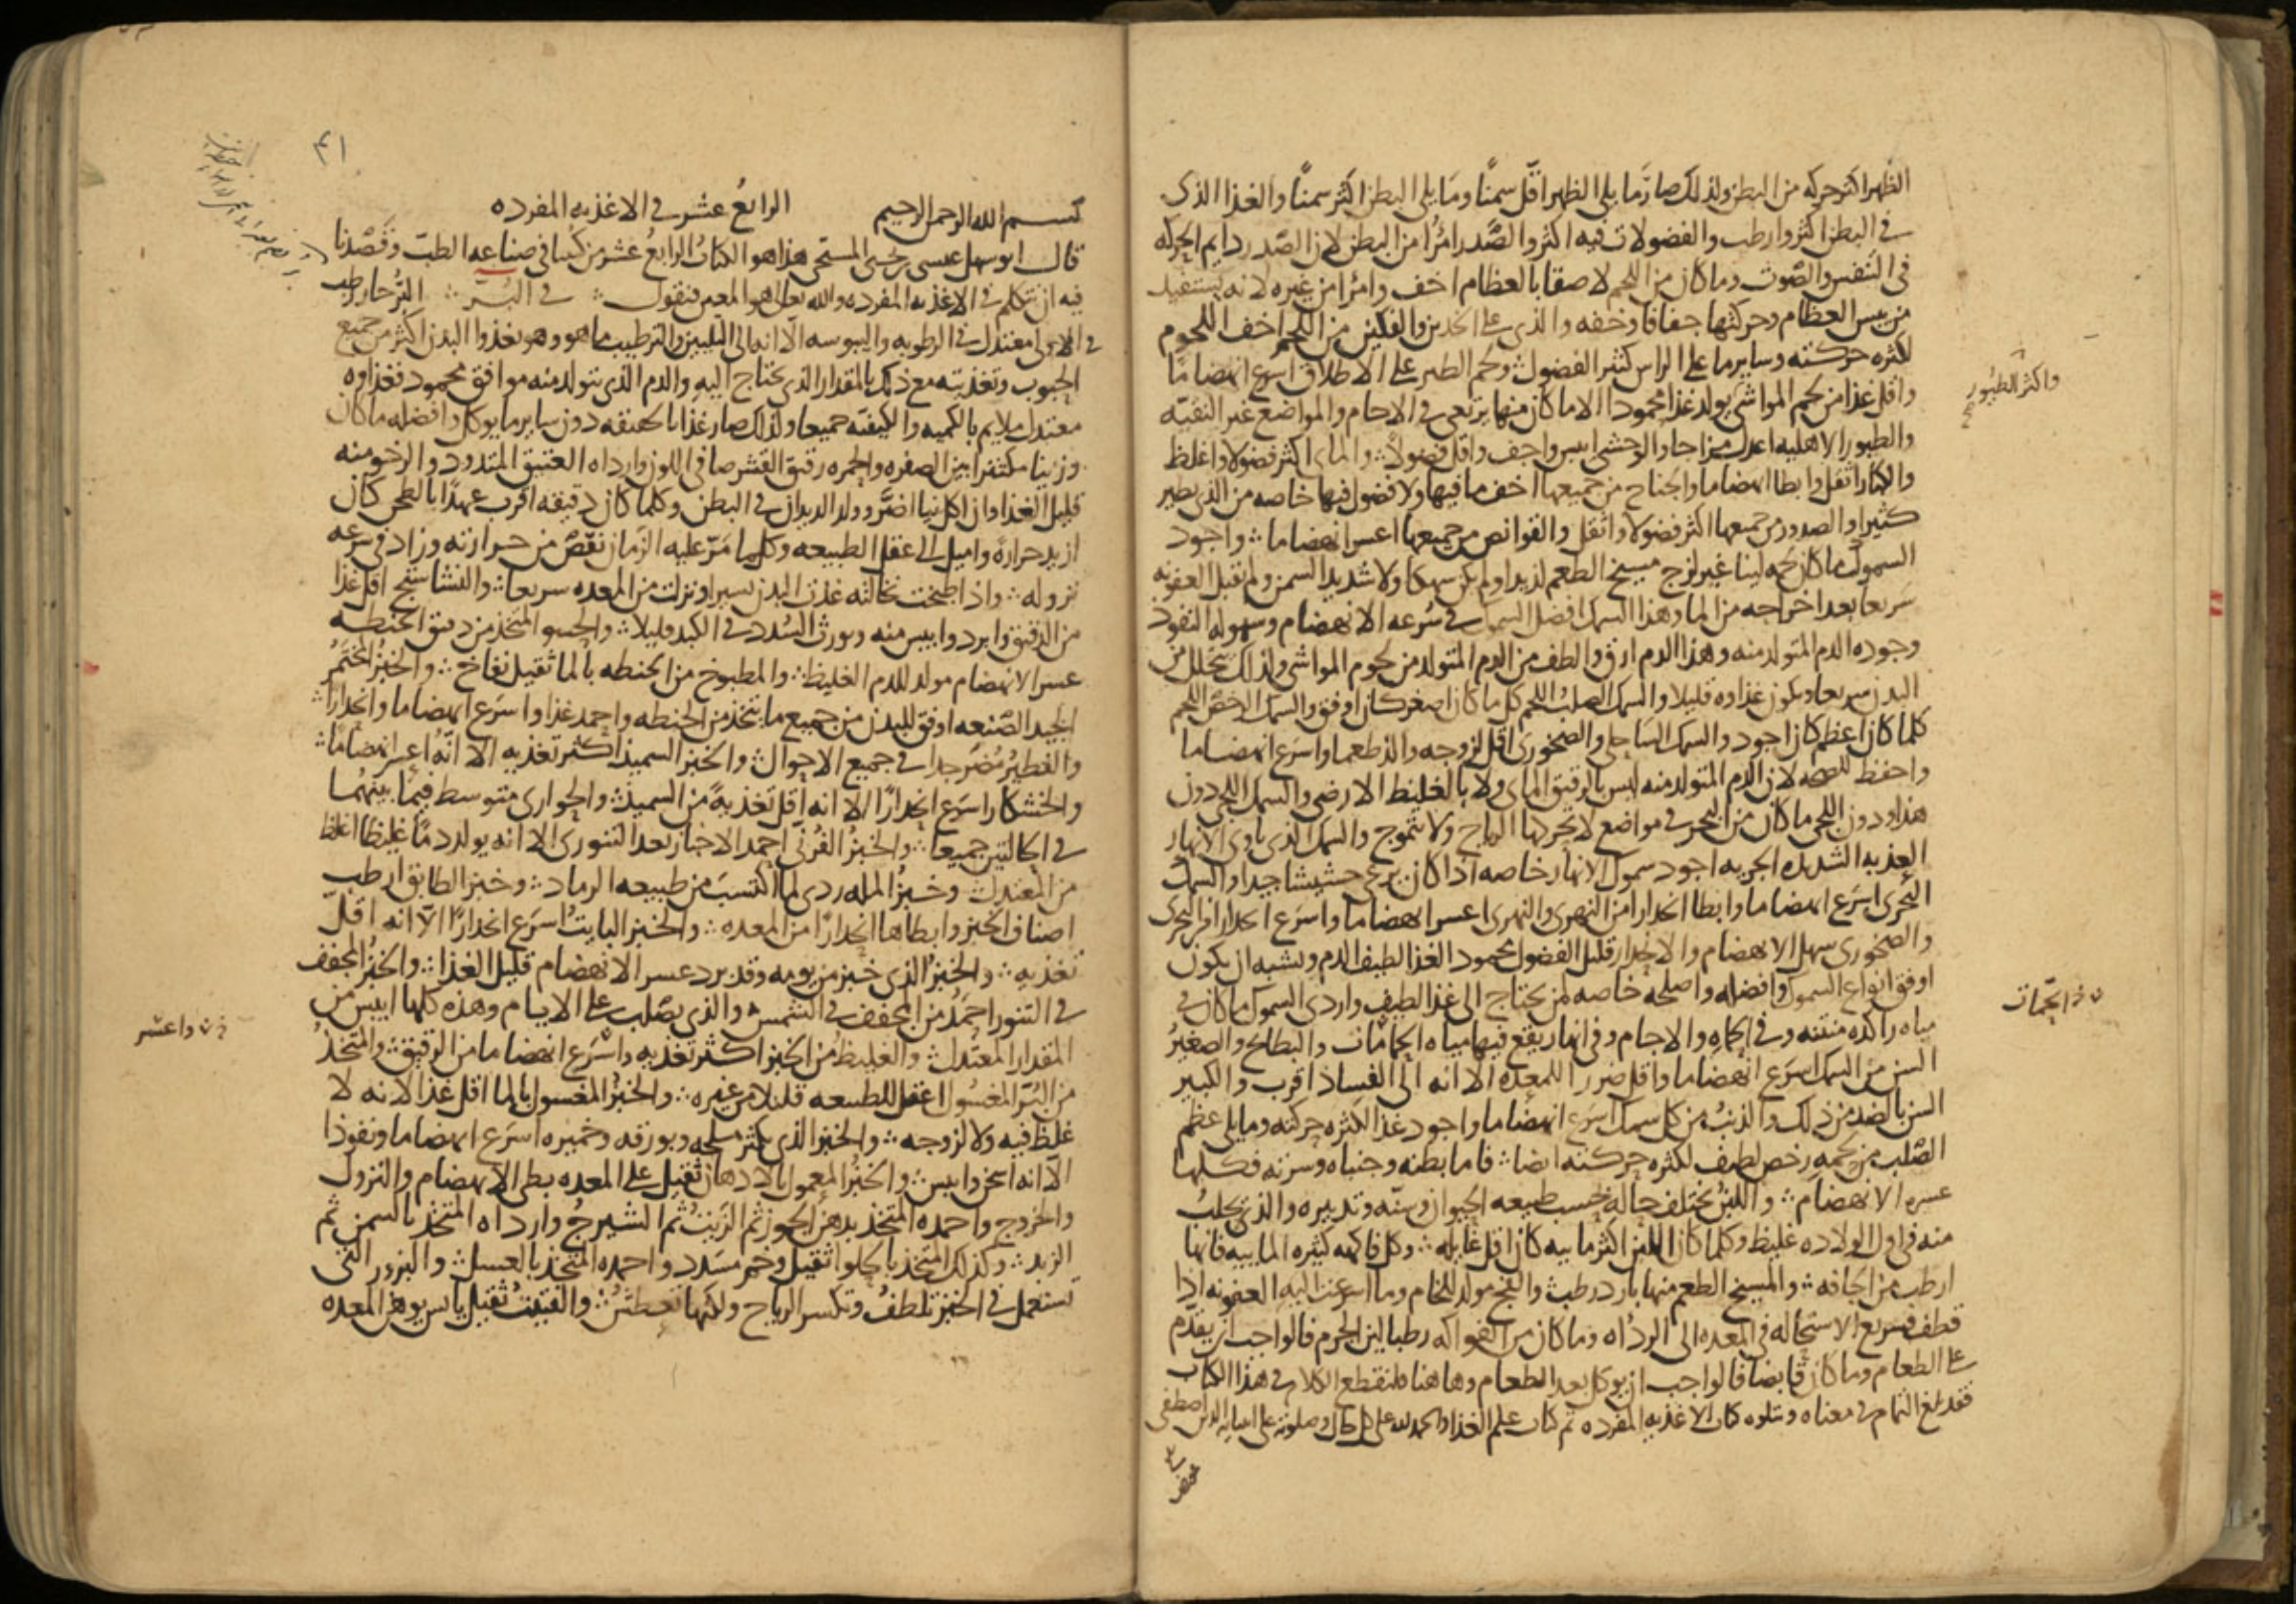 الظهر اكثر حركه من البطن ولذلك صار ما يلى الظهر اقل سمنًا وما يلى البطن اكثر سمنًا والغذا الذى
فى البطن اكثر وارطب والفضولات فيه اكثر والصدر امرأ من البطن لان الصدر دايم الحركه
فى التنفس والصوت وما كان من اللحم لاصقا بالعظام اخف وامرأ من غيره لانه يستفيد
من يبس العظام وحركتها جفافا وخفه والذى على الخدين والفكين من اللحم اخف اللحوم
لكثره حركته وساير ما على الراس كثير الفضول ولحم الطير على الاطلاق اسرع انهضاما
واقل غذا من لحم المواشى يولد غذا محمودا الا ما كان منها يرتعى فى الاجام والمواضع غير النقيه
واكثر الطيور
والطيور الاهليه اعدل مزاجا والوحشى ايبس واجف واقل فضولا والماى اكثر فضولا واغلظ
والكبار اثقل وابطا انهضاما والجناح من جميعها اخف ما فيها ولا فضول فيها خاصه من الذى يطير
كثيرا والصدور من جميعها اكثر فضولا واثقل والقوانص من جميعها اعسر انهضاما واجود
السموك ما كان لحمه لينا غير لزج مسيخ الطعم لذيذا ولم يكن سهكا ولا شديد السمن ولم يقبل العفونه
سريعا بعد اخراجه من الما وهذا السمك افضل السمك فى سرعه الانهضام وسهوله النفوذ
وجوده الدم المتولد منه وهذا الدم ارق والطف من الدم المتولد من لحوم المواشى ولذلك يتحلل من
البدن سريعا ويكون غذاوه قليلا والسمك الصلب اللحم كل ما كان اصغر كان اوفق والسمك الرخص اللحم
كلما كان اعظم كان اجود والسمك الساحلى والصخورى اقل لزوجه والذ طعما واسرع انهضاما
واحفظ للصحه لان الدم المتولد منه ليس بالرقيق الماى ولا بالغليظ الارضى والسمك اللجى دون
هذا ودون اللجى ما كان من البحر فى مواضع لا تحركها الرياح ولا تتموج والسمك الذى ياوى الانهار
العذبه الشديده الجريه اجود سموك الانهار خاصه اذا كان يرعى حشيشا جيدا والسمك
البحرى اسرع انهضاما وابطا انحدارا من النهرى والنهرى اعسر انهضاما واسرع انحدارا من البحرى
والصخورى سهل الانهضام والانحدار قليل الفضول محمود الغذا لطيف الدم ويشبه ان يكون
اوفق انواع السموك وافضله واصلحه خاصه لمن يحتاج الى غذا لطيف واردى السموك ما كان فى
مياه راكده منتنه وفى الحماه والاجام وفى انهار يقع فيها مياه الحمامات والبطايح والصغير
السن من السمك اسرع انهضاما واقل ضررا للمعده الا انه الى الفساد اقرب والكبير
السن بالضد من ذلك والذنب من كل سمك اسرع انهضاما واجود غذا لكثره حركته وما يلى عظم
الصلب من لحمه رخص لطيف لكثره حركته ايضا فاما بطنه وجنباه وسرته فكلها
عسره الانهضام واللبن يختلف حاله بحسب طبيعه الحيوان وسنه وتدبيره والذى يحلب
منه فى اول الولاده غليظ وكلما كان اللبن اكثر مابيه كان اقل غايله وكل فاكهه كثيره المابيه فانها
ارطب من الجافه والمسيخ الطعم منها بارد رطب والفج مولد للخام وما اسرعت اليه العفونه اذا
قطف فسريع الاستحاله فى المعده الى الرداه وما كان من الفواكه رطبا لين الجرم فالواجب ان يقدم
على الطعام وما كان قابضا فالواجب ان يوكل بعد الطعام وهاهنا فلنقطع الكلام فى هذا الكتاب
فقد بلغ التمام فى معناه ويتلوه كتاب الاغذيه المفرده تم كتاب علم الغذا والحمد لله على كل حال وصلوته على انبيايه الذين اصطفى
بسم الله الرحمن الرحيم الرابع عشر فى الاغذيه المفرده
قال ابو سهل عيسى بن يحيى المسيحى هذا هو الكتاب الرابع عشر من كتبنا فى صناعه الطب وقصدنا
فيه ان نتكلم فى الاغذيه المفرده والله تعالى هو المعين فنقول فى البر البر حار رطب
فى الاولى معتدل فى الرطوبه واليبوسه الا انه الى التليين والترطيب ما هو وهو يغذوا البدن اكثر من جميع
الحبوب وتغذيته مع ذلك بالمقدار الذى يحتاج اليه والدم الذى يتولد منه موافق محمود فغذاوه
معتدل ملايم بالكميه والكيفيه جميعا ولذلك صار غذا بالحقيقه دون ساير ما يوكل وافضله ما كان
وزينا مكتنزا بين الصفره والحمره رقيق القشر صافى اللون وارداه العتيق المتدود والرخو منه
قليل الغذا وان اكل نيا اضر وولد الديدان فى البطن وكلما كان دقيقه اقرب عهدًا بالطحن كان
ازيد حرارة واميل الى عقل الطبيعه وكلما مر عليه الزمان نقص من حرارته وزاد فى سرعه
نزوله واذا طبخت نخالته غذت البدن يسيرا ونزلت من المعده سريعا والنشاستج اقل غذا
من الدقيق وابرد وايبس منه ويورث السدد فى الكبد قليلا والحسو المتخذ من دقيق الحنطه
عسر الانهضام مولد للدم الغليظ والمطبوخ من الحنطه بالما ثقيل نفاخ والخبز المختمر
الجيد الصنعه اوفق للبدن من جميع ما يتخذ من الحنطه واحمد غذا واسرع انهضاما وانحدارا
والفطير مضر جدا فى جميع الاحوال والخبز السميذ اكثر تغذيه الا انه اعسر انهضامًا
والخشكار اسرع انحدارًا الا انه اقل تغذيةً من السميذ والحوارى متوسط فيما بينهما
فى الحالتين جميعا والخبز الفرنى احمد الاخباز بعد التنورى الا انه يولد دمًا غليظا اغلظ
من المعتدل وخبز المله ردى لما اكتسب من طبيعه الرماد وخبز الطابق ارطب
اصناف الخبز وابطاها انحدارًا من المعده والخبز البايت اسرع انحدارًا الا انه اقل
تغذيه والخبز الذى خبز من يومه وقد برد عسر الانهضام قليل الغذا والخبز المجفف
فى التنور احمد من المجفف فى الشمس والذى يصلب على الايام وهذه كلها ايبس من
المقدار المعتدل والغليظ من الخبز اكثر تغذيه واسرع انهضاما من الرقيق والمتخذ
واعسر
من البر المغسول اعقل للطبيعه قليلا من غيره والخبز المغسول بالما اقل غذا لانه لا
غلظ فيه ولا لزوجه والخبز الذى يكثر ملحه وبورقه وخميره اسرع انهضاما ونفوذا
الا انه اسخن وايبس والخبز المعمول بالادهان ثقيل على المعده بطى الانهضام والنزول
والخروج واحمده المتخذ بدهن الجوز ثم الزيت ثم الشيرج وارداه المتخذ بالسمن ثم
الزبد وكذلك المتخذ بالحلوا ثقيل وخم مسدد واحمده المتخذ بالعسل والبزور التى
تستعمل فى الخبز تلطف وتكسر الرياح ولكنها تعطش والفتيت ثقيل يابس يوهن المعده